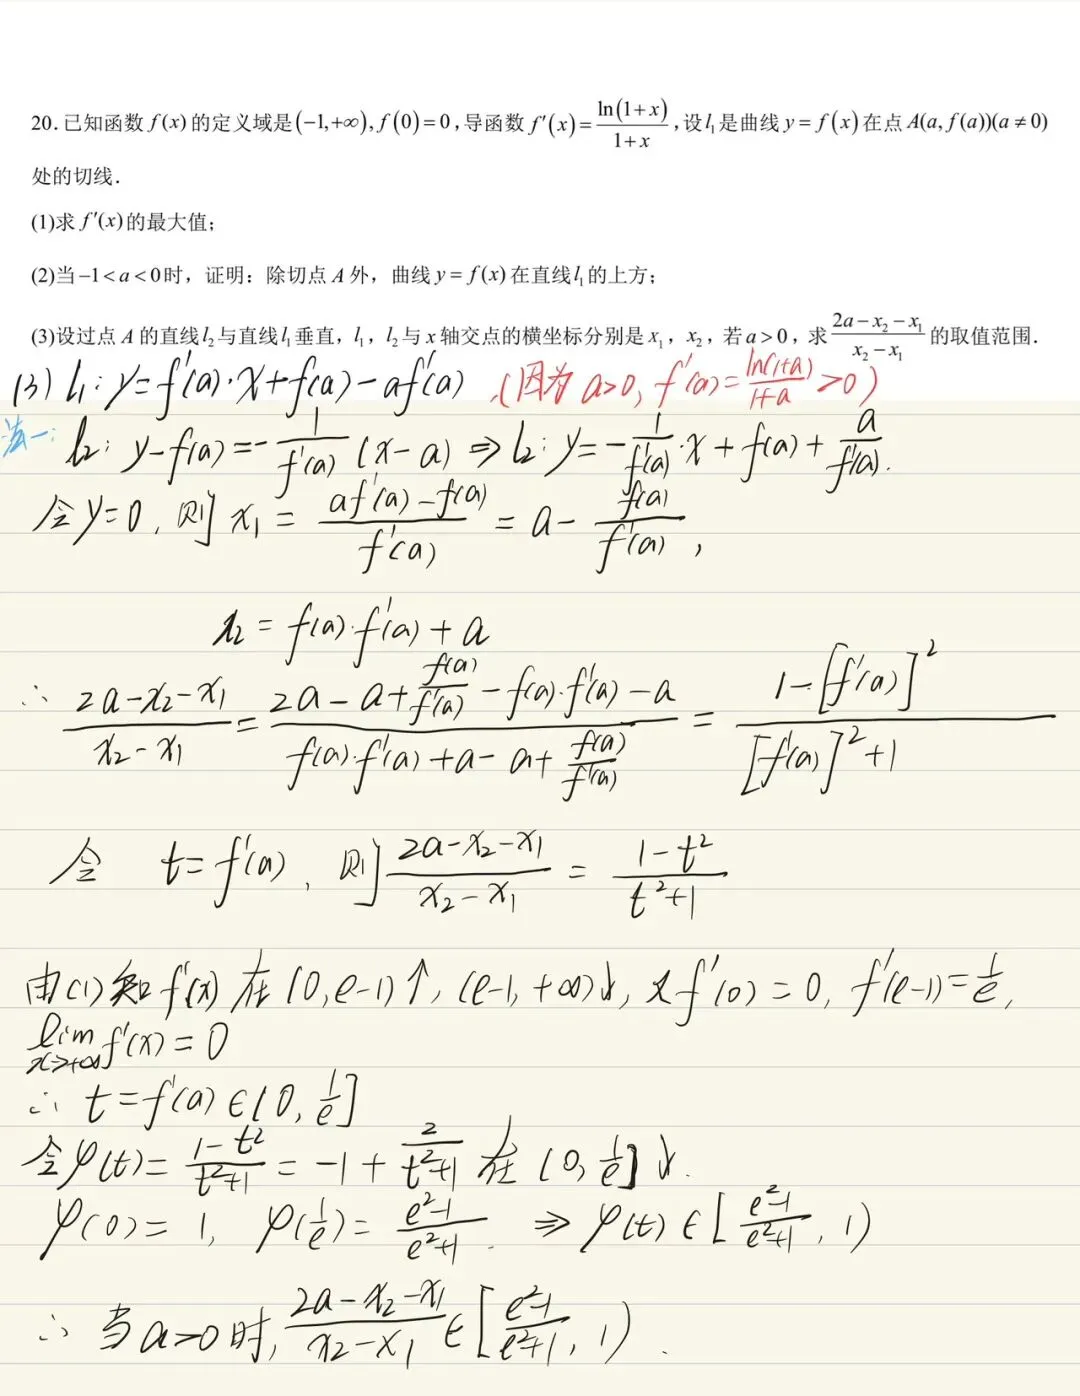 20.已知函数 f(x) 的定义域是(-1,+∞), f(0)=0,导函数 f′(x)=ln(1+x)/(1+x),设l₁是曲线 y=f(x)在点 A(a,f(a))(a≠0)
处的切线.
(1)求 f′(x)的最大值;
(2)当-1<a<0时，证明：除切点 A 外，曲线 y=f(x)在直线l₁的上方;
(3)设过点 A 的直线l₂与直线l₁垂直，l₁，l₂与 x 轴交点的横坐标分别是 x₁，x₂，若a>0，求(2a-x₂-x₁)/(x₂-x₁)的取值范围.
(3) l₁: y=f′(a)·x+f(a)-af′(a) (因为 a>0, f′(a)=ln(1+a)/(1+a)>0)
法一: l₂: y-f(a)=-1/f′(a) (x-a) ⇒ l₂: y=-1/f′(a)·x+f(a)+a/f′(a).
令y=0, 则 x₁=(af′(a)-f(a))/f′(a)=a-f(a)/f′(a),
x₂=f(a)·f′(a)+a
∴ (2a-x₂-x₁)/(x₂-x₁)=(2a-a+f(a)/f′(a)-f(a)·f′(a)-a)/(f(a)·f′(a)+a-a+f(a)/f′(a))=(1-[f′(a)]²)/([f′(a)]²+1)
令 t=f′(a), 则(2a-x₂-x₁)/(x₂-x₁)=(1-t²)/(t²+1)
由(1)知 f′(x) 在 (0,e-1)↑, (e-1,+∞)↓, 又f′(0)=0, f′(e-1)=1/e,
lim x→+∞ f′(x)=0
∴ t=f′(a)∈(0,1/e]
令φ(t)=(1-t²)/(t²+1)=-1+2/(t²+1) 在 (0,1/e]↓.
φ(0)=1, φ(1/e)=(e²-1)/(e²+1). ⇒ φ(t)∈[(e²-1)/(e²+1), 1)
∴ 当a>0时, (2a-x₂-x₁)/(x₂-x₁)∈[(e²-1)/(e²+1), 1).